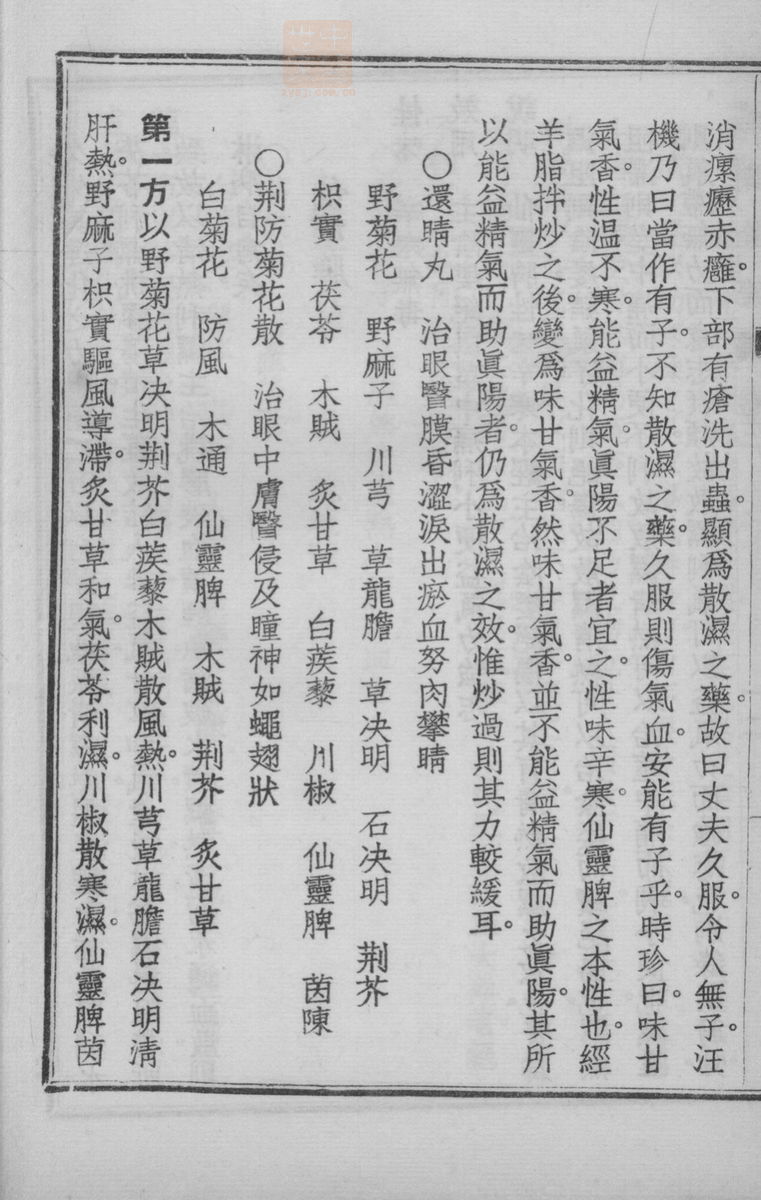 消瘰癧赤癰。下部有瘡洗出蟲。顯爲散濕之藥。故曰丈夫久服。令人無子。汪
機乃曰當作有子。不知散濕之藥。久服則傷氣血。安能有子乎。時珍曰。味甘
氣香。性温不寒。能益精氣。眞陽不足者宜之。性味辛寒。仙靈脾之本性也。經
羊脂拌炒之後。變爲味甘氣香。然味甘氣香。並不能益精氣而助眞陽。其所
以能益精氣而助眞陽者。仍爲散濕之效。惟炒過則其力較緩耳。
〇還睛丸　治眼瞖膜昏澀淚出瘀血努肉攀睛
野菊花　野麻子　川芎　草龍膽　草决明　石决明　荆芥
枳實　茯苓　木賊　炙甘草　白蒺藜　川椒　仙靈脾　茵陳
〇荆防菊花散　治眼中膚瞖侵及瞳神如蠅翅狀
白菊花　防風　木通　仙靈脾　木賊　荆芥　炙甘草
第一方以野菊花草决明荆芥白蒺藜木賊散風熱。川芎草龍膽石决明淸
肝熱。野麻子枳實驅風導滯。炙甘草和氣。茯苓利濕。川椒散寒濕。仙靈脾茵